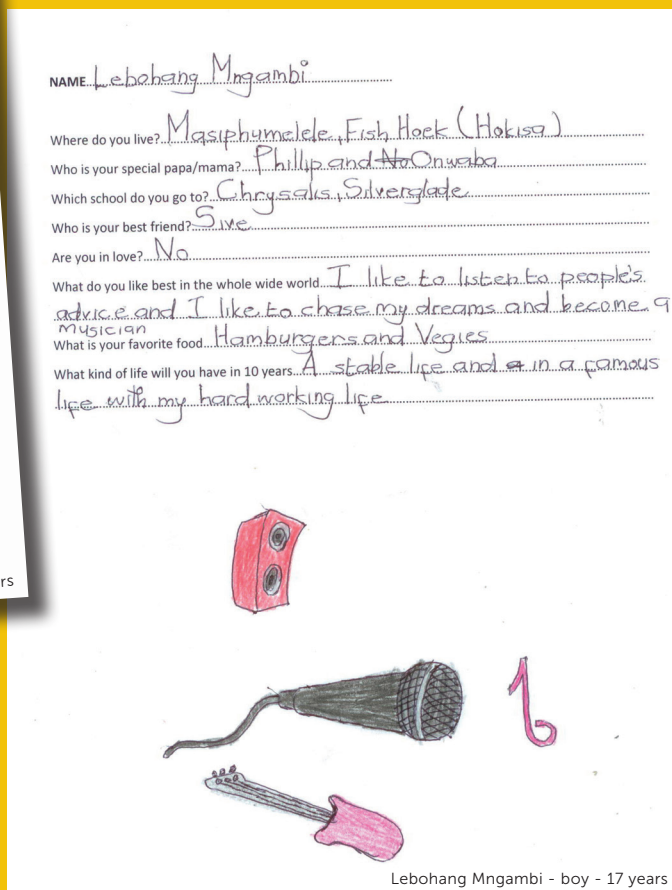 NAME Lebohang Mngambi
Where do you live? Masiphumelele, Fish Hoek (Hokisa)
Who is your special papa/mama? Phillip and No Onwaba
Which school do you go to? Chrysalis, Silverglade
Who is your best friend? Sive
Are you in love? No
What do you like best in the whole wide world I like to listen to people's
advice and I like to chase my dreams and become a
musician
What is your favorite food Hamburgers and Vegies
What kind of life will you have in 10 years A stable life and a in a famous
life with my hard working life
rs
Lebohang Mngambi - boy - 17 years